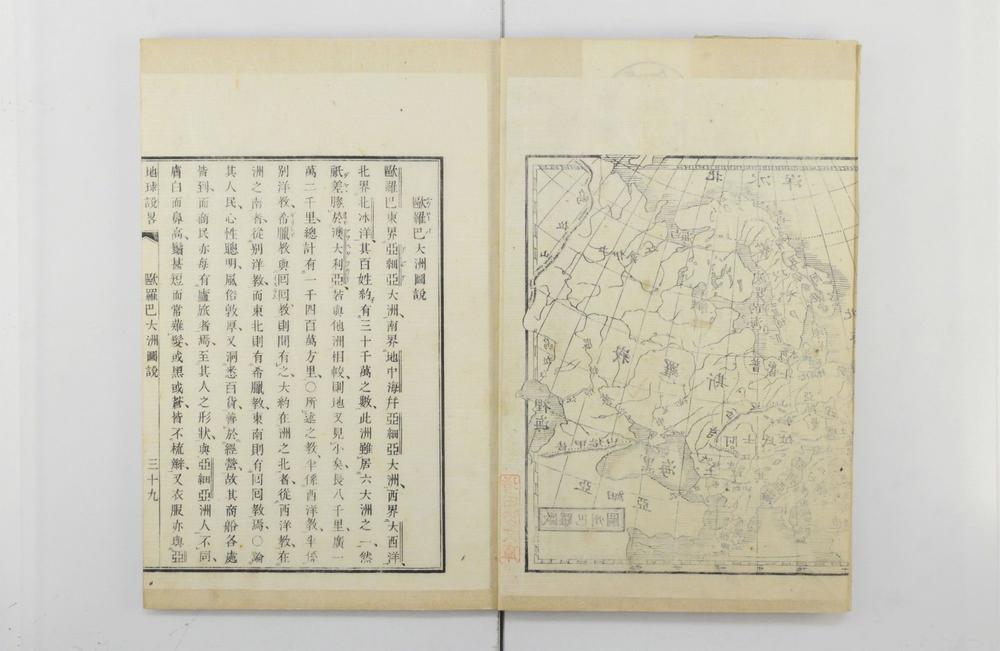 歐羅巴大洲圖說
歐羅巴東界亞細亞大洲南界地中海幷亞細亞大洲西界大西洋
北界北冰洋其百姓約有三十千萬之數此洲雖居六大洲之一然
祇差勝於澳大利亞若與他洲相較則地又見小矣長八千里廣一
萬二千里總計有一千四百萬方里〇所述之教半係西洋教半係
別洋教希臘教與囘囘教則間有之大約在洲之北者從西洋教在
洲之南者從別洋教而東北則有希臘教東南則有囘囘教焉〇論
其人民心性聰明風俗敦厚又洞悉百貨善於經營故其商船各處
皆到而商民亦每有廬旅者焉至其人之形狀與亞細亞洲人不同
膚白而鼻高鬚甚短而常薙髮或黑或蒼皆不梳辮又衣服亦與亞
地球說畧 歐羅巴大洲圖說 三十九
北冰洋
峩羅斯
普
裡海
黑海
亞細亞
歐羅巴州圖